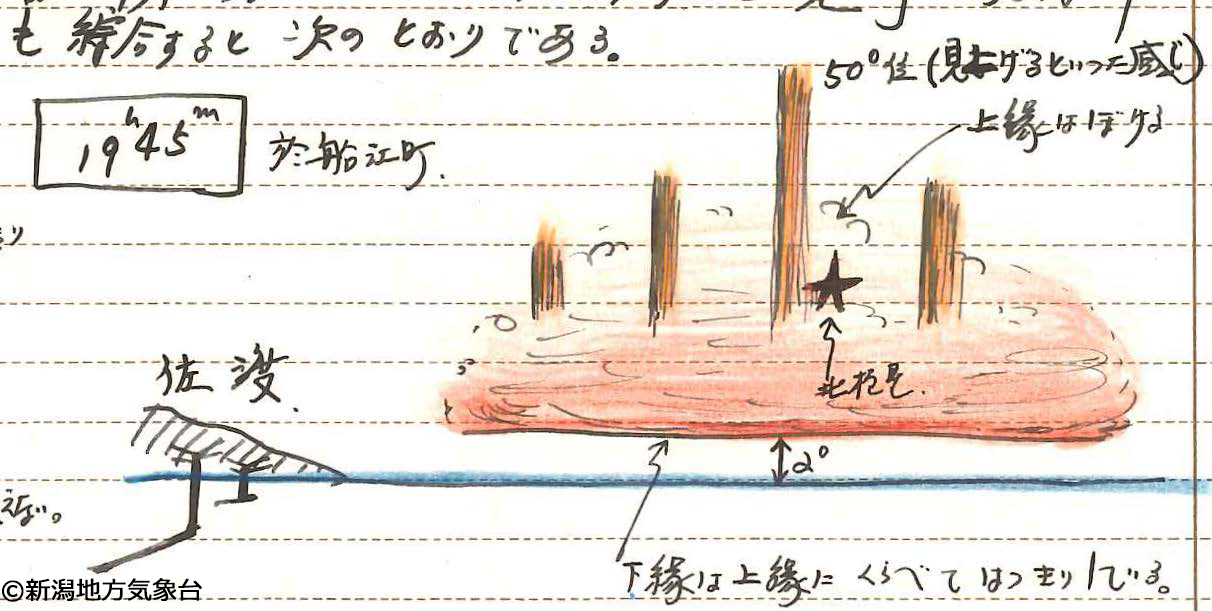 も綜合すると次のとおりである。
50°位(見上げるといった感じ)
上縁はぼける
19h45m
於船江町.
佐渡.
北極星.
2°
えない。
下縁は上縁にくらべてはっきりしている。
©新潟地方気象台